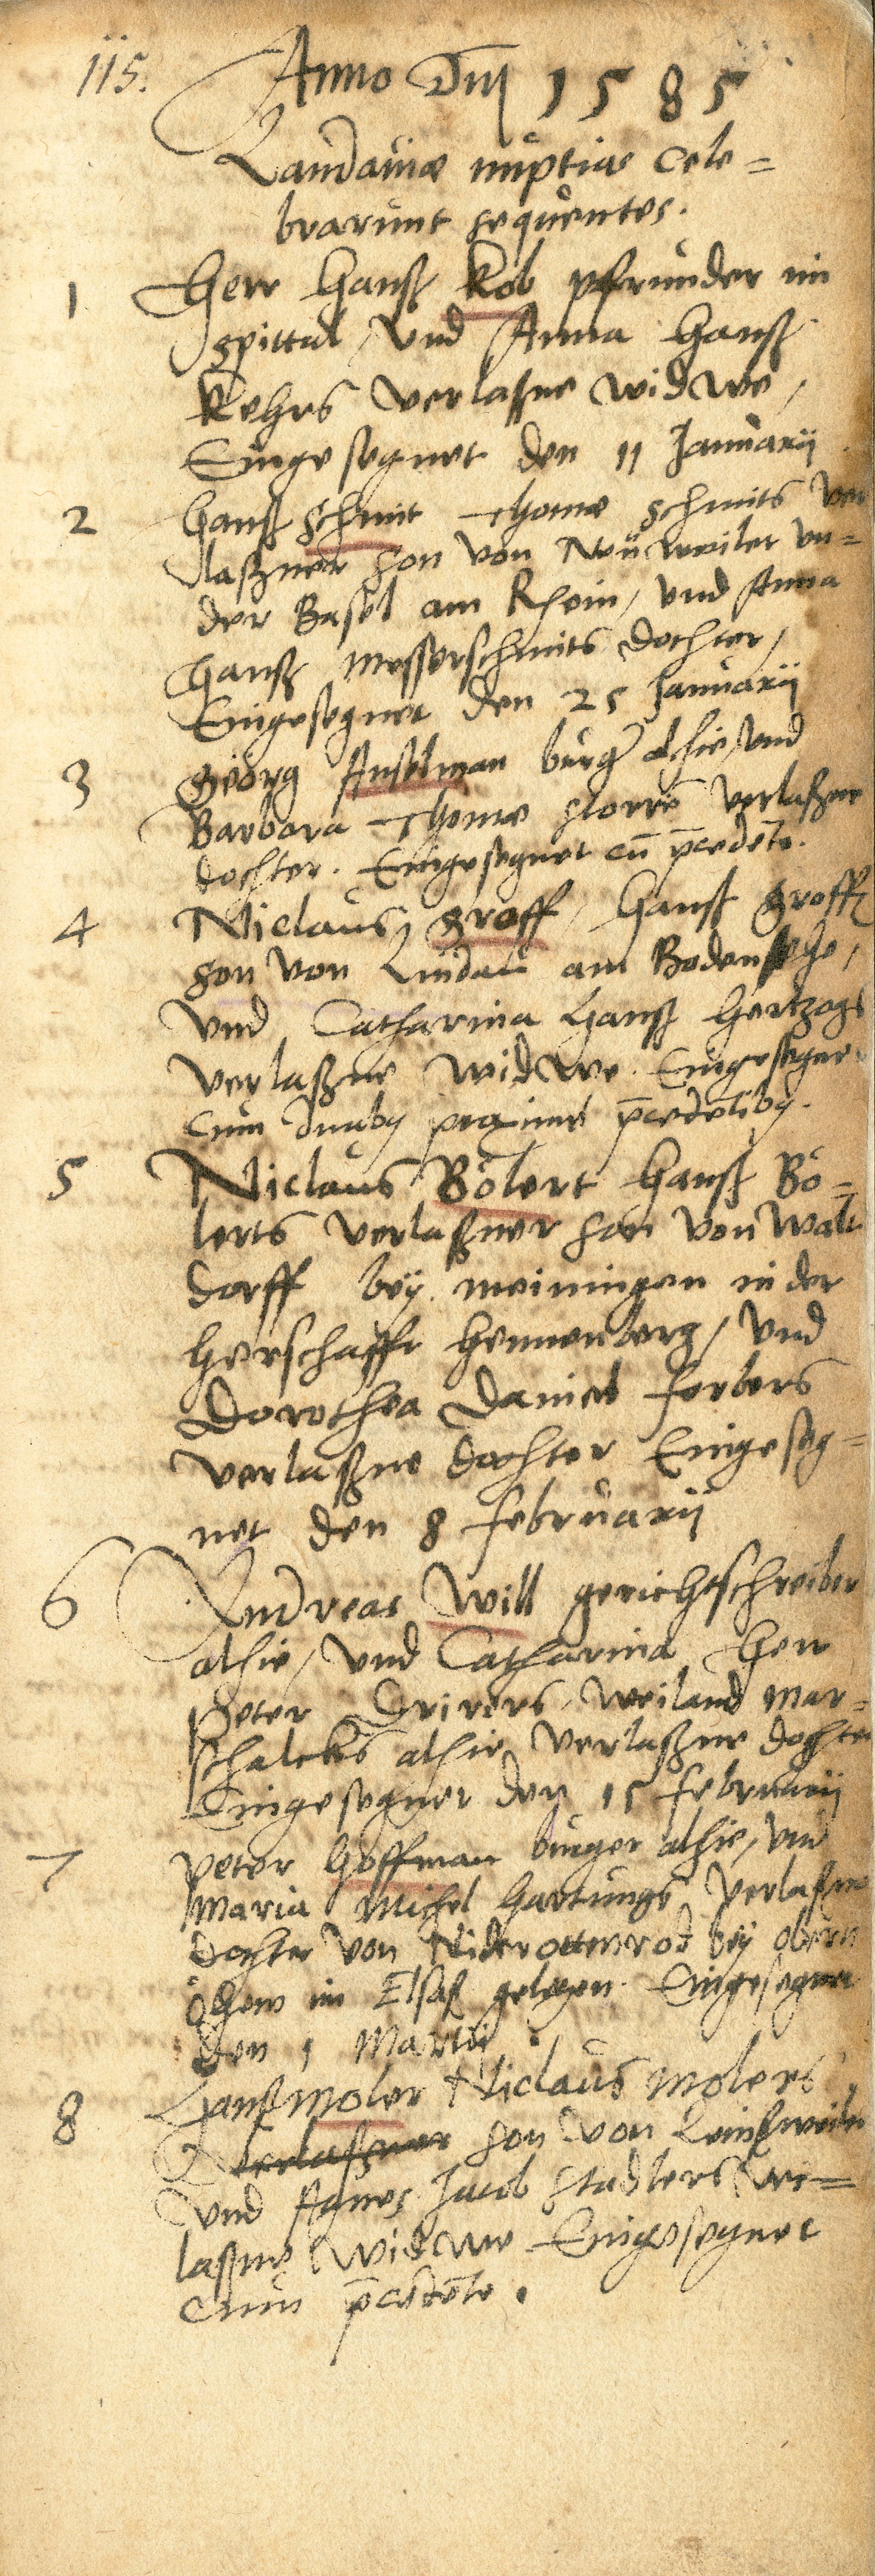 115.
Anno Dni 1585
Landauiæ nuptias cele=
brarunt sequentes.
1 Herr Hanß Kob pfrunder im
spittal, vnd Anna Hanß
Kehrs verlaßne widwe,
Eingesegnet den 11 Januarij
2 Hanß Schmit Thomæ Schmits ver
laßner son von Neüweiler vn=
der Basel am Rhein, vnd Anna
Hanß Messerschmits dochter,
Eingesegnet den 25 Januarij
3 Georg Anselman burger alhie, vnd
Barbara Thomæ verlaßne
dochter. Eingesegnet cū p̄cedēte.
4 Niclaus Groff, Hanß Groffs
son von Lindau am Bodensehe,
vnd Catharina Hanß Hertzogs
verlaßne widwe. Eingesegnet
cum duaby proxime p̄cedētiby.
5 Niclaus Bölert Hanß Bö=
lerts verlaßner son von Walt
dorff bey meiningen in der
Herschafft Hennenberg, vnd
Dorothea Daniel Ferbers
verlaßne dochter Eingeseg=
net den 8 Februarij
6 Andreas Will gerichtschreiber
alhie, vnd Catharina Herr
Peter weiland mar=
schalcks alhie verlaßne dochter
Eingesegnet den 15 Februarij
7 Peter Hoffman burger alhie, vnd
Maria Michel Hartungs verlaßne
dochter von Niderottenrod bey obern
Ehem im Elsaß gelegen. Eingesegnet
den 1 Martij
8 Hanß Moler Niclaus Molers
verlaßner son von Leinßweiler
vnd Agnes Jacob Stadlers ver=
laßne widwe Eingesegnet
cum p̄cedēte.